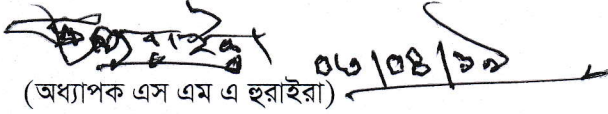 ০৩/০৪/১৯
(অধ্যাপক এস এম এ হুরাইরা)